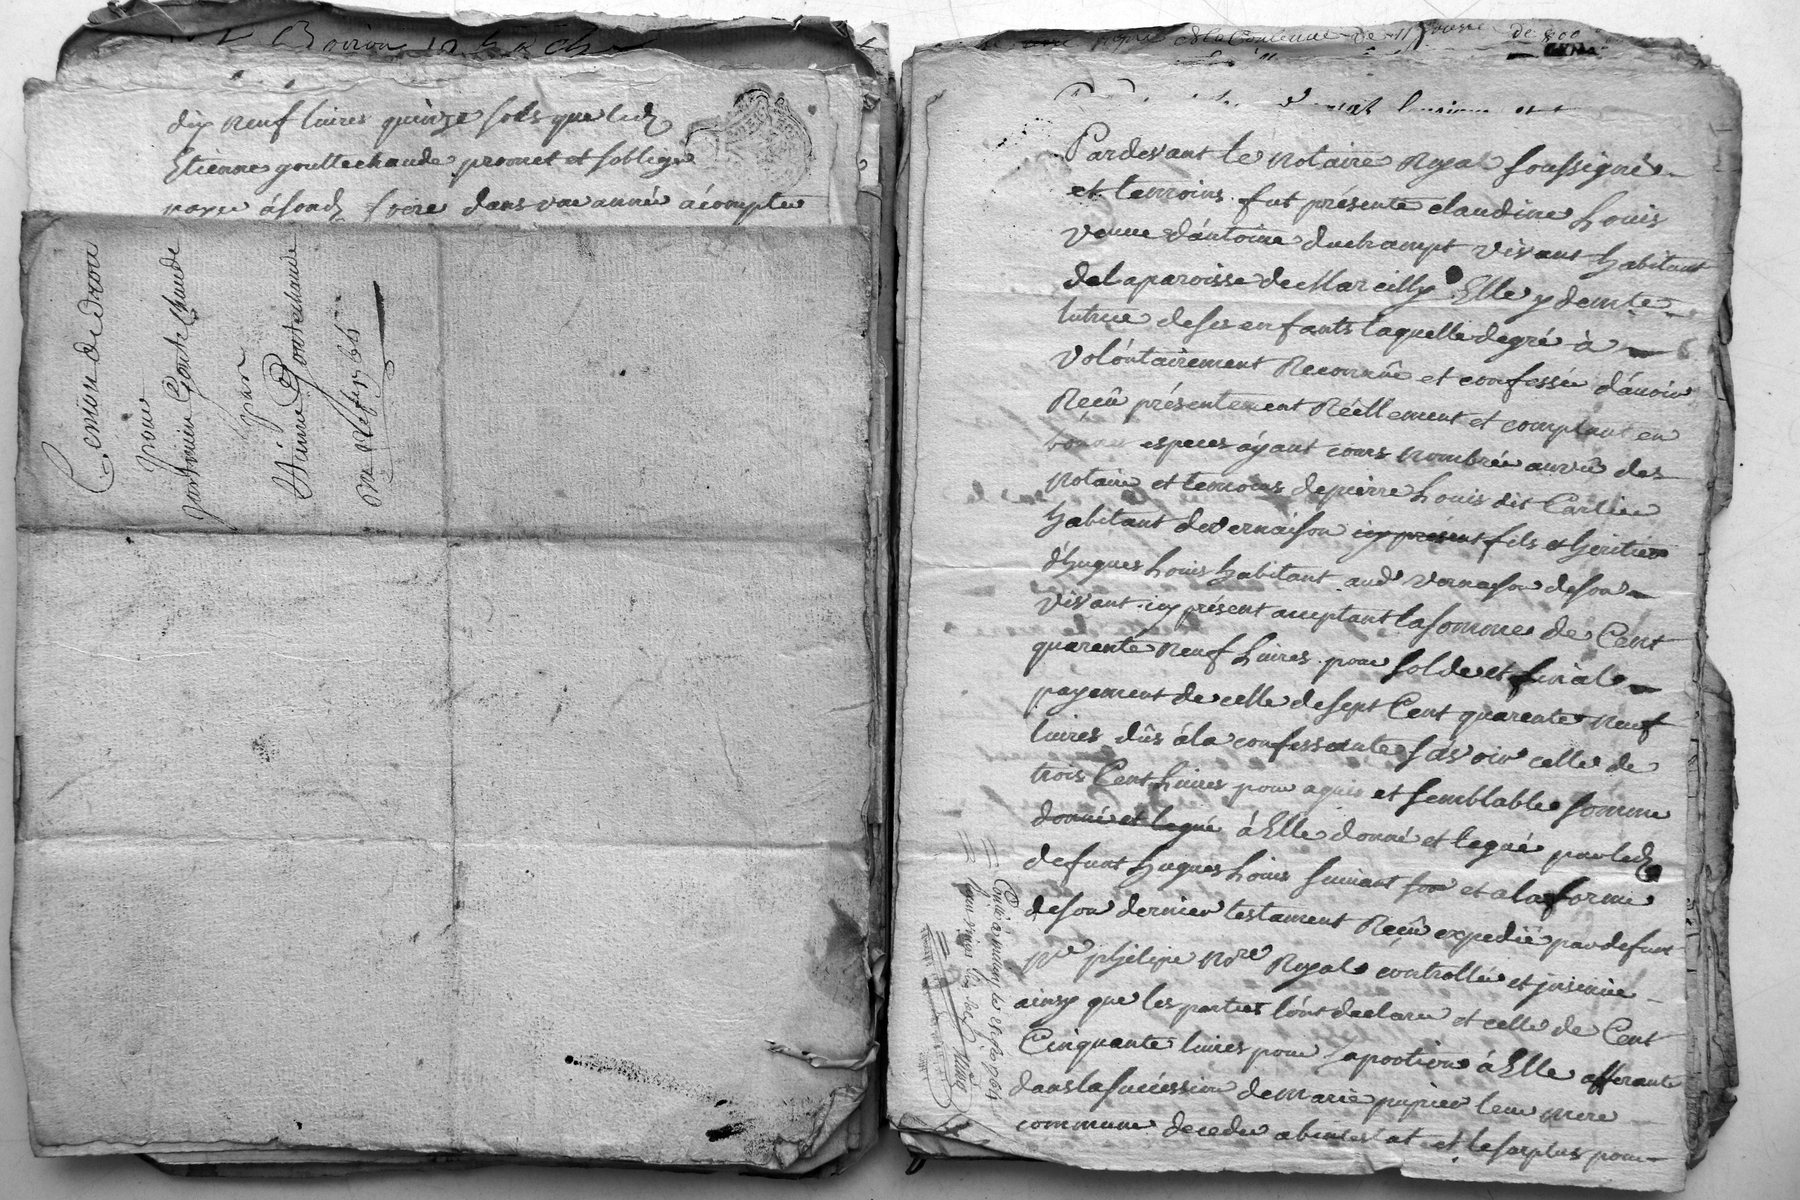 dix neuf livres quinze sols que led
Etienne gouttechaude promet et soblige
payer á sond frere dans une année á compter
Cession de droit
pour
Gouttechaude
par
Etienne Gouttechaude
Pardevant le Notaire Royal soussigné
et temoins fut présente claudine Louis
veuve d'antoine duchampt vivant habitant
de la paroisse de Marcilly Elle y demte
tutrice de ses enfants laquelle de gré à
volóntairement Reconnû et confessée d'avoir
Reçû présentement Réellement et comptant en
bonnes especes ayant cours nombrée au vû des
notaire et temoins de pierre Louis dit Carlin
habitant de vernaison icy présent fils et héritier
d'hugues Louis habitant aud vernaison de son
vivant icy présent acceptant la somme de Cent
quarente Neuf Livres pour solde et final
payement de celle de sept Cent quarente Neuf
livres dûs á la confessante savoir celle de
trois Cent Livres pour et semblable somme
donné et legué á Elle donné et legué par led
defunt hugues Louis suivant et a la forme
de son dernier testament Reçû expedié par defunt
Me philipe Nore Royal controllé et insinué
ainsy que les parties l'ónt declaré et celle de Cent
Cinquante livres pour sa portion á Elle afferante
dans la succéssion de marie pupier leur mere
commune decedée abintestat et le surplus pour